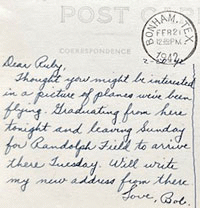 POST CAR
CORRESPONDENCE
BONHAM, TEX.
FEB 21
12 PM
1942
Dear Ruby,
Thought you might be interested
in a picture of planes we've been
flying. Graduating from here
tonight and leaving Sunday
for Randolph Field to arrive
there Tuesday. Will write
my new address from there
Love, Bob.